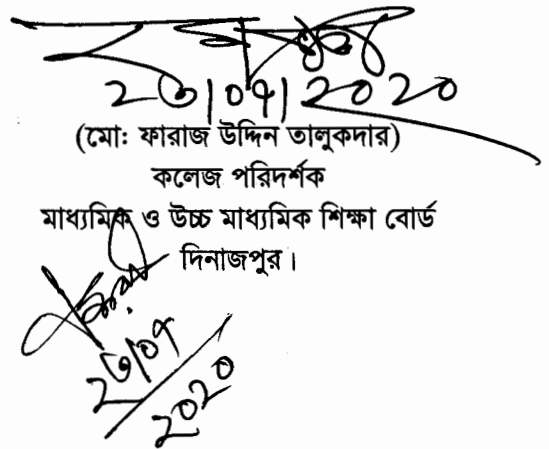 ২৩|০৭|২০২০
(মোঃ ফারাজ উদ্দিন তালুকদার)
কলেজ পরিদর্শক
মাধ্যমিক ও উচ্চ মাধ্যমিক শিক্ষা বোর্ড
দিনাজপুর।
২৩/০৭
২০২০